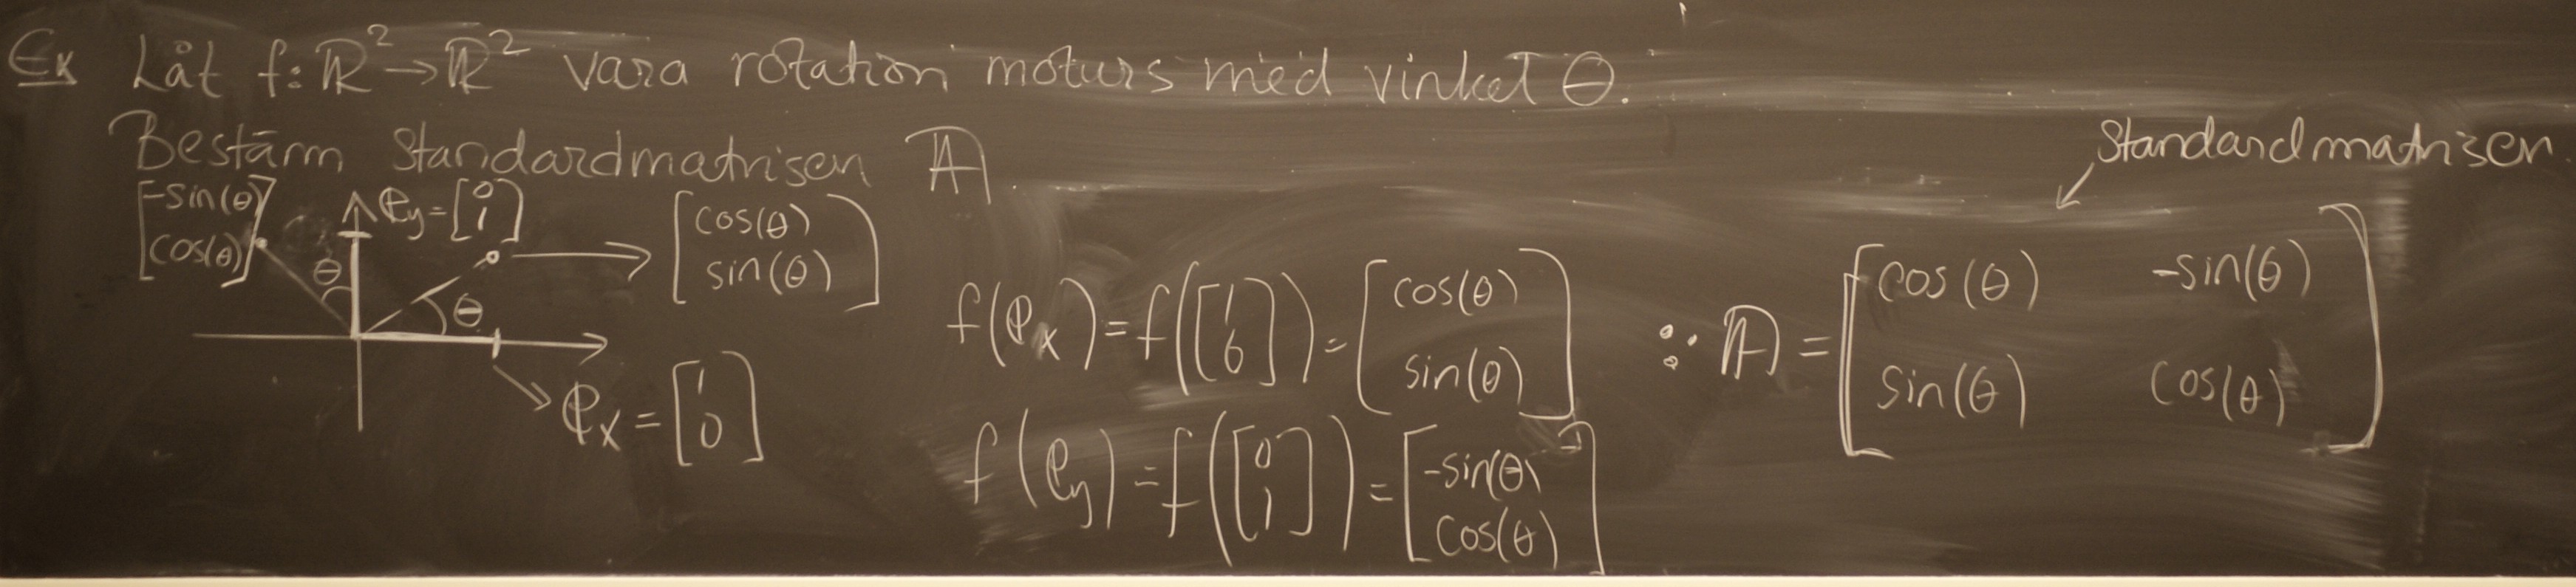 Ex Låt f: ℝ² → ℝ² vara rotation moturs med vinkel θ.
Bestäm standardmatrisen A
[-sin(θ)
cos(θ)]
θ
e_y = [0
1]
[cos(θ)
sin(θ)]
θ
e_x = [1
0]
f(e_x) = f([1
0]) = [cos(θ)
sin(θ)]
f(e_y) = f([0
1]) = [-sin(θ)
cos(θ)]
Standardmatrisen
∴ A = [cos(θ) -sin(θ)
sin(θ) cos(θ)]